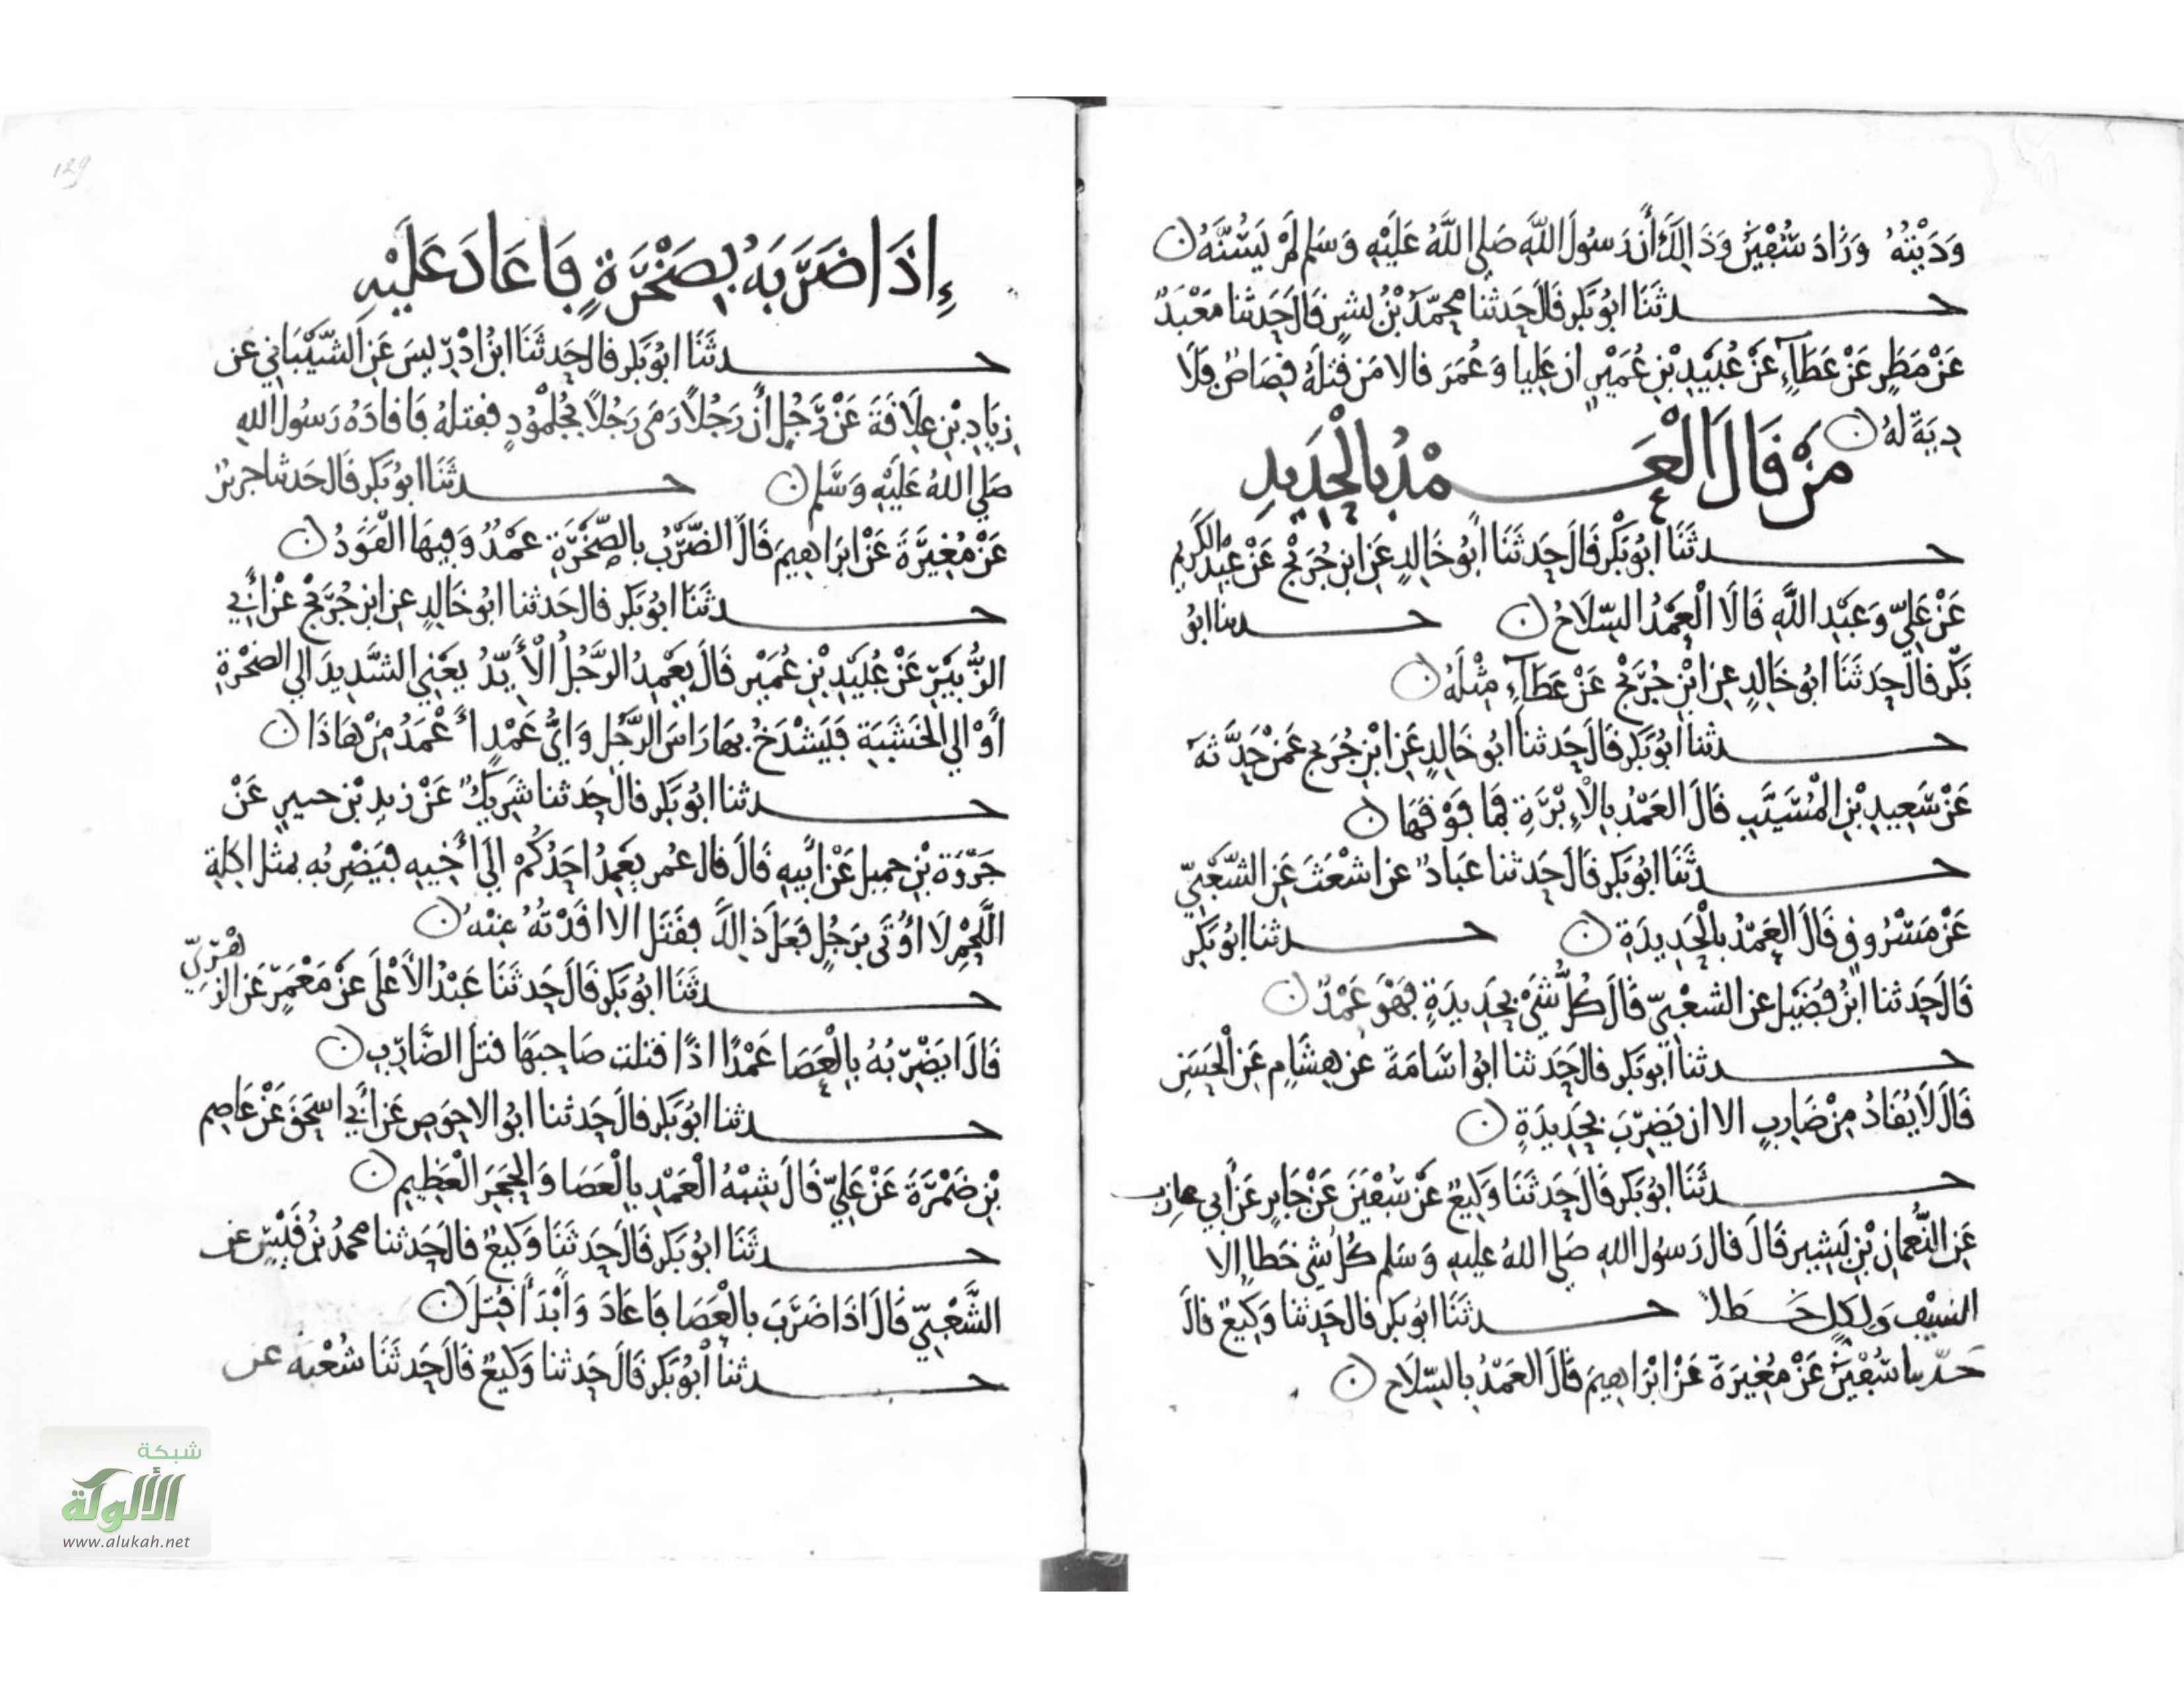 وَدَيْتُهُ وَزَادَ سُفْيٰنُ وَذَالِكَ أَن رَسُولَ اللَّهِ صَلى اللَّهُ عَلَيْهِ وَسَلم لَمْ يَسُنَّهُ ن
حدثَنَا ابُو بَكر قَالَ حَدثنا محمّدُ بْنُ بشرٍ قَالَ حَدثنا مَعْبَدٌ
عَنْ مَطَرٍ عَنْ عَطَآءٍ عَنْ عُبَيْدِ بْنِ عُمَيْرٍ ان عَلِيا وَعُمَرَ قالا مَن قَتلهُ قِصَاصٌ فَلَا
دِيَةَ لهُ ن
مَنْ قَالَ الْعَمْدُ بِالْحَدِيدِ
حدثَنَا أبُو بَكْر قَالَ حَدثَنَا أبُو خَالِدٍ عَنِ ابنِ جُرَيْجٍ عَنْ عَبْدِ الكَرِيمِ
عَنْ عَلِيّ وَعَبْدِ اللَّهِ قَالَا الْعَمْدُ السِّلَاحُ ن حدثنا ابُو
بَكْر قالَ حَدثَنَا ابُو خَالِدٍ عن ابْنِ جُرَيْجٍ عَنْ عَطَآءٍ مِثْلَهُ ن
حدثنا ابُو بَكر قَالَ حَدثنا ابُو خَالِدٍ عَنِ ابْنِ جُرَيج عَمن حَدَّثَهُ
عَنْ سَعِيدِ بْنِ الْمُسَيَّبِ قَالَ العَمْدُ بِالْإِبْرَةِ فَمَا فَوْقَهَا ن
حدثَنَا ابُو بَكر قَالَ حَدثنا عَبادٌ عن اشْعَثَ عَنِ الشَّعْبِيّ
عَنْ مَسْرُوقٍ قَالَ العَمْدُ بِالْحَدِيدَةِ ن حدثنا ابُو بَكْر
قَالَ حَدثنا ابْنُ فُضَيْلٍ عن الشعْبِيّ قَالَ كُلُّ شَيْءٍ بِحَدِيدَةٍ فَهْوَ عَمْدٌ ن
حدثنا أبُو بَكر قالَ حَدثنا ابُو اسَامَةَ عن هِشَامٍ عَنِ الْحَسَنِ
قَالَ لَا يُقَادُ مِنْ ضَارِبٍ الا ان يَضرِبَ بِحَدِيدَةٍ ن
حدثَنَا ابُو بَكر قَالَ حَدثَنَا وَكِيعٌ عَنْ سُفْيٰنَ عَنْ جَابِرٍ عَن أبي عازب
عَنِ النُّعْمَانِ بْنِ بَشِيرٍ قَالَ قال رَسُولُ اللهِ صَلى اللهُ عليهِ وَسَلم كُلُ شَي خَطا إلا
السَّيْفَ وَلِكُلِ خَطَإ حدثَنَا ابُو بَكر قالَ حَدثنا وَكِيعٌ قالَ
حَدّثنا سُفْيٰنُ عَنْ مُغِيرَةَ عَنْ ابْرَاهِيمَ قَالَ العَمْدُ بِالسِّلَاحِ ن
إِذَا ضَرَبَهُ بِصَخْرَةٍ فَاعَادَ عَلَيْهِ
حدثَنَا ابُو بَكر قالَ حَدثَنَا ابنُ ادْرِيسَ عَنِ الشَّيْبَانِي عَن
زِيَادِ بْنِ عِلَاقَةَ عَنْ رَجُلٍ أن رَجُلاً رَمَى رَجُلاً بِجُلْمُودٍ فقتلهُ فَاقَادَهُ رَسُولُ اللهِ
صَلي اللهُ عَلَيْهِ وَسَّلم ن حدثَنَا ابُو بَكر قَالَ حَدثنا جَريرٌ
عَنْ مُغِيرَةَ عَنْ ابْرَاهِيمَ قَالَ الضَّرْبُ بِالصَّخْرَةِ عَمْدٌ وَفِيهَا الْقَوَدُ ن
حدثَنَا ابُو بَكر قالَ حَدثنا ابُو خَالِدٍ عنِ ابنِ جُرَيْجٍ عَنْ أَبِي
الزُّبَيْرِ عَنْ عُبَيْدِ بْنِ عُمَيْر قَالَ يَعْمِدُ الرَّجُلُ الْأَيِّدُ يَعْنِي الشَّدِيدَ الي الصَّخْرَةِ
أوْ الي الخَشَبَةِ فَيَشْدَخُ بِهَا رَاسَ الرَّجُلِ وَايُّ عَمْدٍ أعْمَدُ مِنْ هَاذَا ن
حدثنا ابُو بَكر قالَ حَدثنا شَرِيكٌ عَنْ زيدِ بْنِ جبير عَنْ
جَرْوَةَ بْنِ حميل عَنْ أبِيهِ قَالَ قال عُمر يَعْمِدُ احَدُكُمْ إِلَى أَخِيهِ فَيَضْرِبُه بمثل اكلةِ
اللَّحْمِ لَا اوُتَى بِرَجُلٍ فَعَلَ ذَالِكَ فقَتَل الا اقَدْتُهُ مِنْهُ ن
حدثَنَا ابُو بَكر قَالَ حَدثَنَا عَبْدُ الاَعْلَى عَنْ مَعْمَرٍ عَن الزُّهْرِيّ
قَالَ يَضْرِبُهُ بِالْعَصَا عَمْدًا اذَا قتلت صَاحِبَهَا قتلَ الضَّارِبُ ن
حدثنا ابُو بَكر قالَ حَدثنا ابُو الاحوَصِ عَن أبي اسحَقَ عَنْ عَاصِم
بْنِ ضَمْرَةَ عَنْ عَلِيّ قَالَ شِبْهُ الْعَمْدِ بِالْعَصَا وَالحَجَرِ الْعَظِيمِ ن
حدثَنَا ابُو بَكر قَالَ حَدثَنَا وَكِيعٌ قالَ حَدثنا محمدُ بْنُ قَيْسٍ عن
الشَّعْبِيّ قَالَ اذَا ضَرَبَ بِالْعَصَا فَاعَادَ وَأَبْدَأَ قُتِلَ ن
حدثنا أبُو بَكر قَالَ حَدثنا وَكِيعٌ قَالَ حَدثَنَا شُعْبَةُ عن
129
شبكة
الألوكة
www.alukah.net